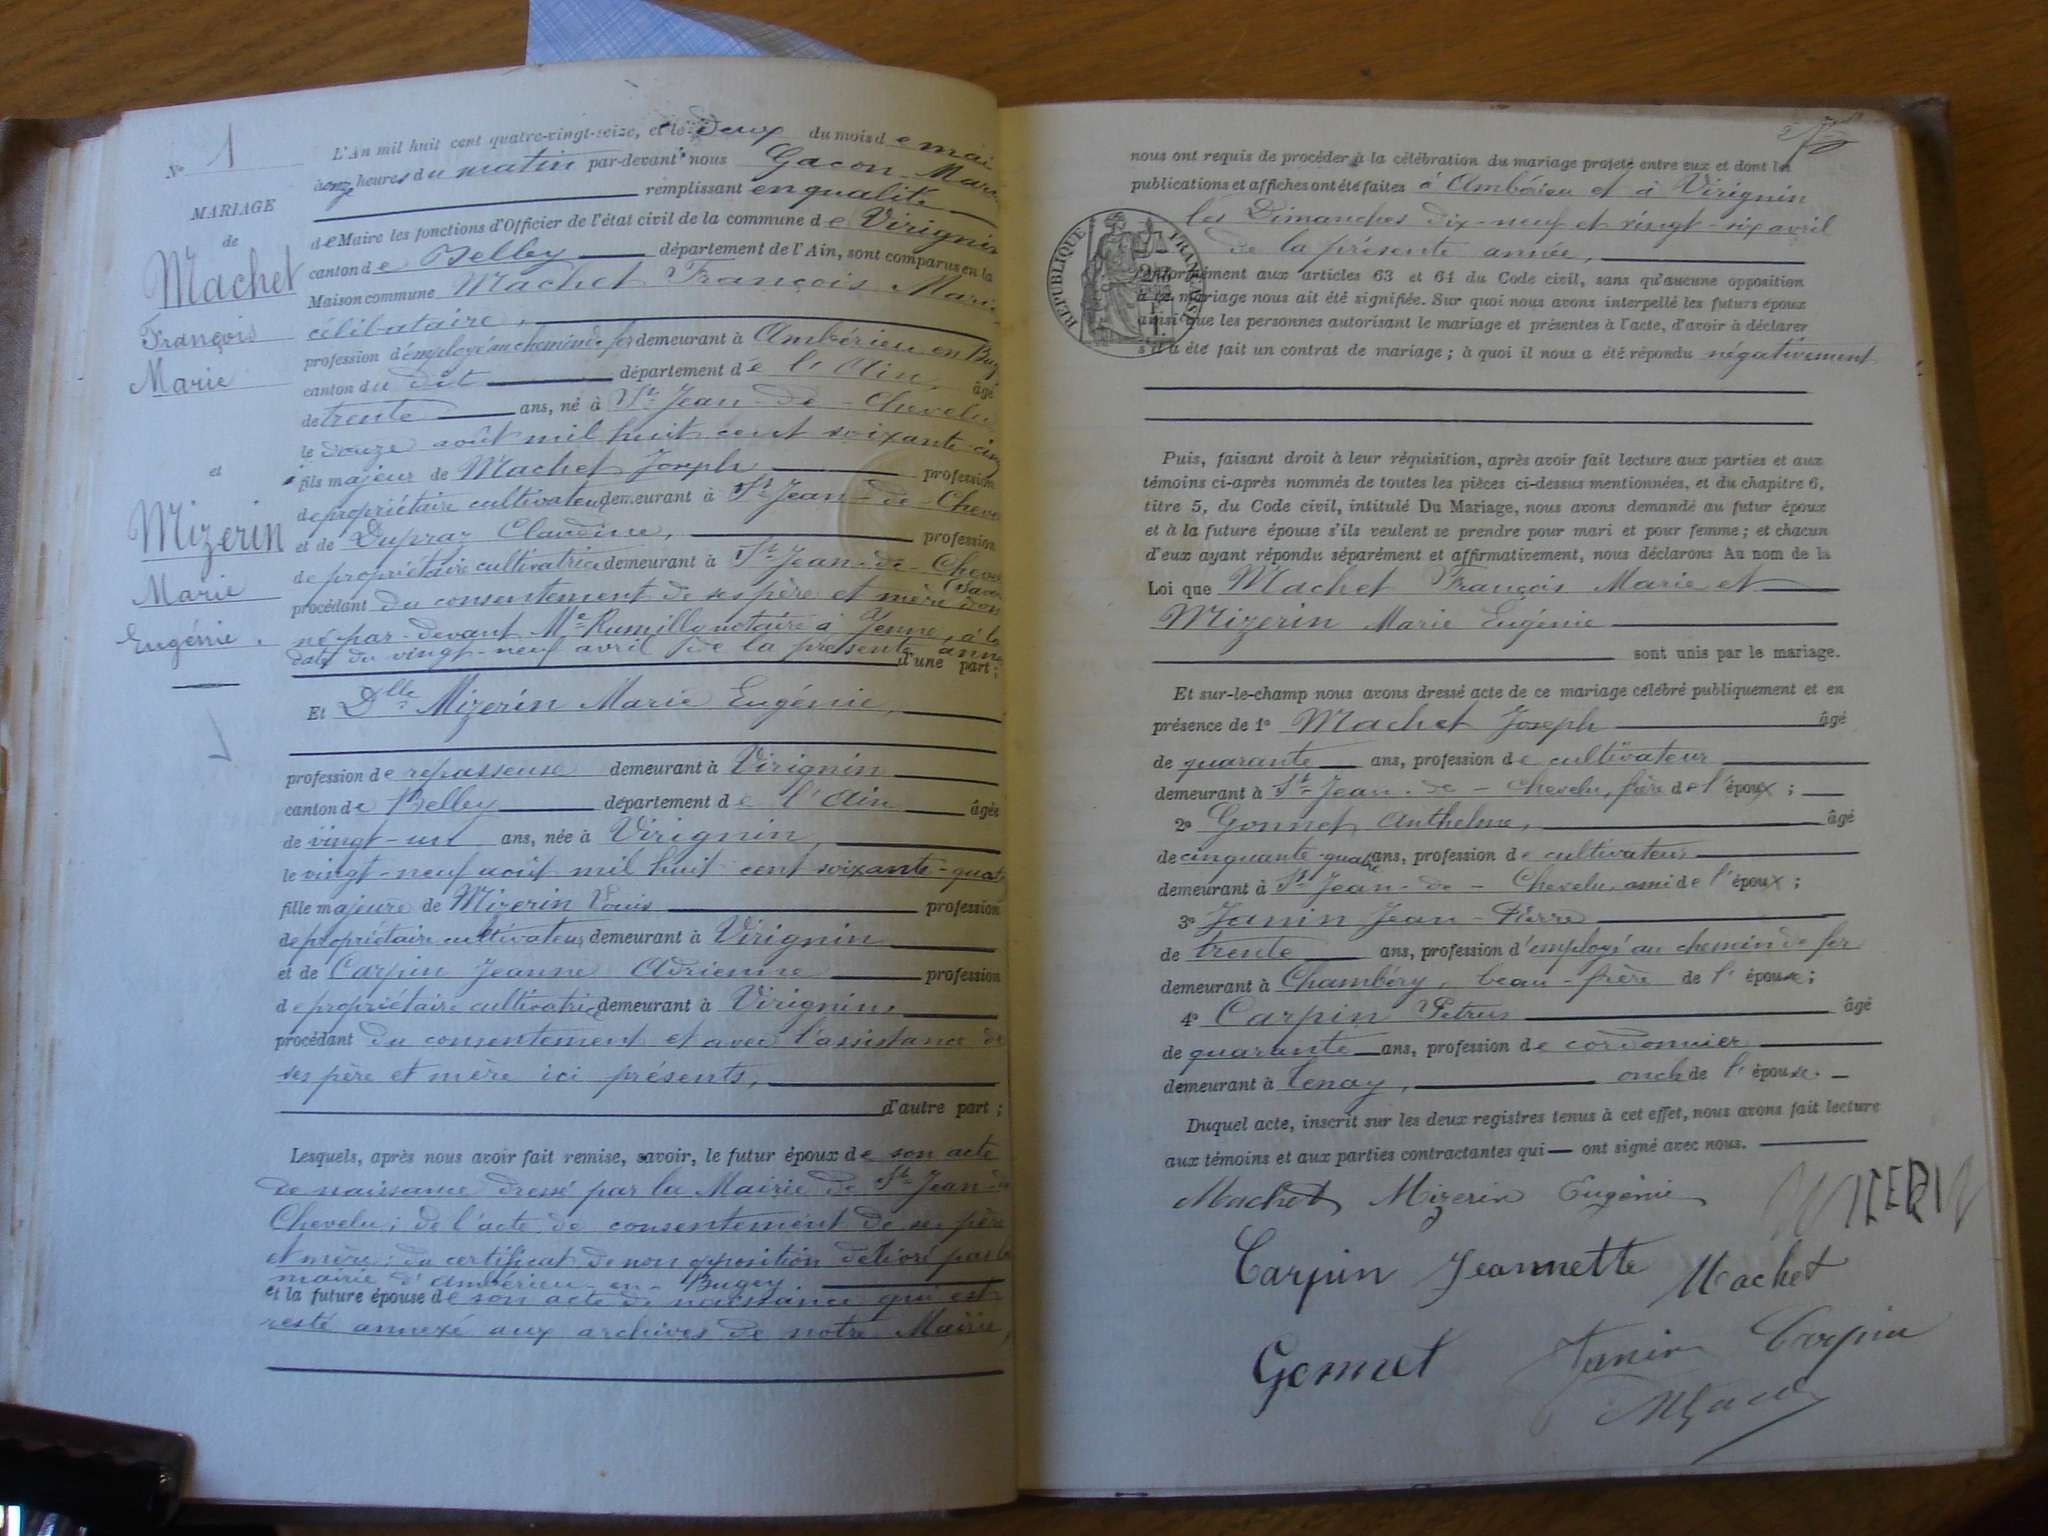 N° 1
MARIAGE
de
Machet
François
Marie
et
Mizerin
Marie
Eugénie.
L'An mil huit cent quatre-vingt-seize, et le deux du mois de mai
à onze heures du matin par-devant nous Gacon
remplissant en qualité
de Maire les fonctions d'Officier de l'état civil de la commune de Virignin
canton de Belley département de l'Ain, sont comparus en la
Maison commune Machet François Marie
célibataire,
profession d'employé au chemin de fer demeurant à Ambérieu en
canton du dit département de l'Ain, âgé
de trente ans, né à St Jean-de-Chevelu
le douze août mil huit cent soixante-cinq
fils majeur de Machet Joseph profession
de propriétaire cultivateur demeurant à St Jean-de-
et de Dupraz Claudine, profession
de propriétaire cultivatrice demeurant à St Jean-de-
procédant du consentement de ses père et mère
né par-devant Me Rumilly notaire à Yenne, à la
date du vingt-neuf avril de la présente
d'une part;
Et Dlle Mizerin Marie Eugénie,
profession de repasseuse demeurant à Virignin
canton de Belley département de l'Ain âgée
de vingt-un ans, née à Virignin,
le vingt-neuf août mil huit cent soixante-quatorze
fille majeure de Mizerin Louis profession
de propriétaire cultivateur demeurant à Virignin
et de Carpin Jeanne Adrienne profession
de propriétaire cultivatrice demeurant à Virignin
procédant du consentement et avec l'assistance de
ses père et mère ici présents,
d'autre part;
Lesquels, après nous avoir fait remise, savoir, le futur époux de son acte
de naissance dressé par la Mairie de St Jean-de
Chevelu; de l'acte de consentement de ses père
et mère; du certificat de non opposition délivré par la
mairie d'Ambérieu-en-Bugey.
et la future épouse de son acte de naissance qui est
resté annexé aux archives de notre Mairie,
nous ont requis de procéder à la célébration du mariage projeté entre eux et dont les
publications et affiches ont été faites à Ambérieu et à Virignin
les Dimanches dix-neuf et vingt-six avril
de la présente année,
RÉPUBLIQUE FRANÇAISE
conformément aux articles 63 et 64 du Code civil, sans qu'aucune opposition
à ce mariage nous ait été signifiée. Sur quoi nous avons interpellé les futurs époux
ainsi que les personnes autorisant le mariage et présentes à l'acte, d'avoir à déclarer
s'il a été fait un contrat de mariage; à quoi il nous a été répondu négativement
Puis, faisant droit à leur réquisition, après avoir fait lecture aux parties et aux
témoins ci-après nommés de toutes les pièces ci-dessus mentionnées, et du chapitre 6,
titre 5, du Code civil, intitulé Du Mariage, nous avons demandé au futur époux
et à la future épouse s'ils veulent se prendre pour mari et pour femme; et chacun
d'eux ayant répondu séparément et affirmativement, nous déclarons Au nom de la
Loi que Machet François Marie et
Mizerin Marie Eugénie
sont unis par le mariage.
Et sur-le-champ nous avons dressé acte de ce mariage célébré publiquement et en
présence de 1° Machet Joseph âgé
de quarante ans, profession de cultivateur
demeurant à St Jean-de-Chevelu, frère de l'époux;
2° Gonnet Anthelme, âgé
de cinquante-quatre ans, profession de cultivateur
demeurant à St Jean-de-Chevelu, ami de l'époux;
3° Janin Jean-Pierre
de trente ans, profession d'employé au chemin de fer
demeurant à Chambéry, beau-frère de l'épouse;
4° Carpin Petrus âgé
de quarante ans, profession de cordonnier
demeurant à Tenay, oncle de l'épouse.
Duquel acte, inscrit sur les deux registres tenus à cet effet, nous avons fait lecture
aux témoins et aux parties contractantes qui ont signé avec nous.
Machet Mizerin Eugénie MIZERIN
Carpin Jeannette Machet
Gonnet Janin Carpin